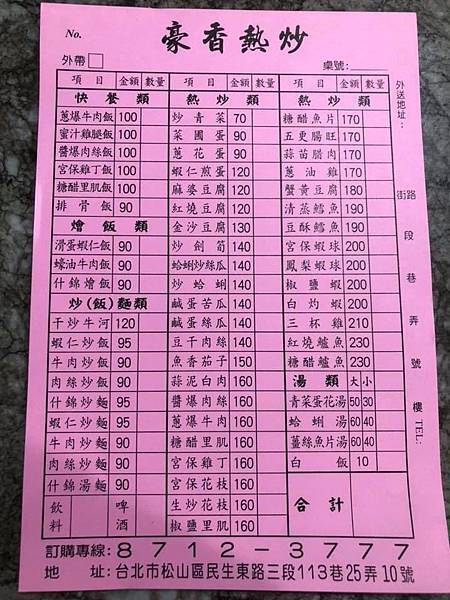 No.
豪香熱炒
外帶
桌號:
項目 金額 數量
快餐類
蔥爆牛肉飯 100
蜜汁雞腿飯 100
醬爆肉絲飯 100
宮保雞丁飯 100
糖醋里肌飯 100
排骨飯 90
燴飯類
滑蛋蝦仁飯 90
蠔油牛肉飯 90
什錦燴飯 90
炒(飯)麵類
干炒牛河 120
蝦仁炒飯 95
牛肉炒飯 90
肉絲炒飯 90
什錦炒麵 90
蝦仁炒麵 95
牛肉炒麵 90
肉絲炒麵 90
什錦湯麵 90
飲料
啤酒
項目 金額 數量
熱炒類
炒青菜 70
菜圃蛋 90
蔥花蛋 90
蝦仁煎蛋 120
麻婆豆腐 120
紅燒豆腐 120
金沙豆腐 130
炒劍筍 140
蛤蜊炒絲瓜 140
炒蛤蜊 140
鹹蛋苦瓜 140
鹹蛋絲瓜 140
豆干肉絲 140
魚香茄子 150
蒜泥白肉 160
醬爆肉絲 160
蔥爆牛肉 160
糖醋里肌 160
宮保雞丁 160
宮保花枝 160
生炒花枝 160
椒鹽里肌 160
項目 金額 數量
熱炒類
糖醋魚片 170
五更腸旺 170
蒜苗腊肉 170
蔥油雞 170
蟹黃豆腐 180
清蒸鱈魚 190
豆酥鱈魚 190
宮保蝦球 200
鳳梨蝦球 200
椒鹽蝦 200
白灼蝦 200
三杯雞 210
紅燒鱸魚 230
糖醋鱸魚 230
湯類 大 小
青菜蛋花湯 50 30
蛤蜊湯 60 40
薑絲魚片湯 60 40
白飯 10
合計
外送地址:
街路
段
巷
弄
號
樓
TEL:
訂購專線:8712-3777
地址:台北市松山區民生東路三段113巷25弄10號